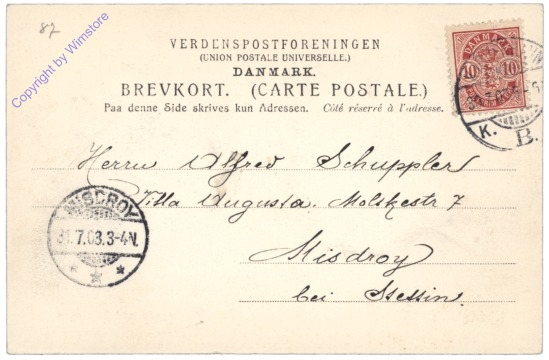 87
Copyright by Wimstore
VERDENSPOSTFORENINGEN
(UNION POSTALE UNIVERSELLE.)
DANMARK.
BREVKORT. (CARTE POSTALE.)
Paa denne Side skrives kun Adressen. Côté réservé à l'adresse.
DANMARK
10 10
K.
B.
Herrn Alfred Schuppler
Villa Augusta. Molskestr 7
Misdroy
bei Stessin.
MISDROY
31.7.03.3-4N.